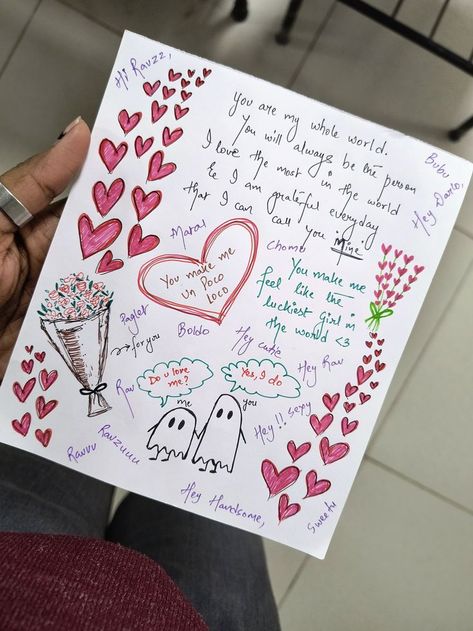 Hi Ravzz,
You are my whole world.
You will always be the person
I love the most in the world
& I am grateful everyday
that I can call you Mine
Bubu
Hey Darlo,
Maral
You make me
Un Poco
Loco
Chomu
You make me
feel like the
luckiest girl in
the world <3
Paglet
→ for you
Boldo
Hey cutie
Hey Rav
Rav
Do u love
me?
Yes, I do
me
you
Hey!! sexy
Ravuu
Ravzuuu
Hey Handsome,
Sweetu